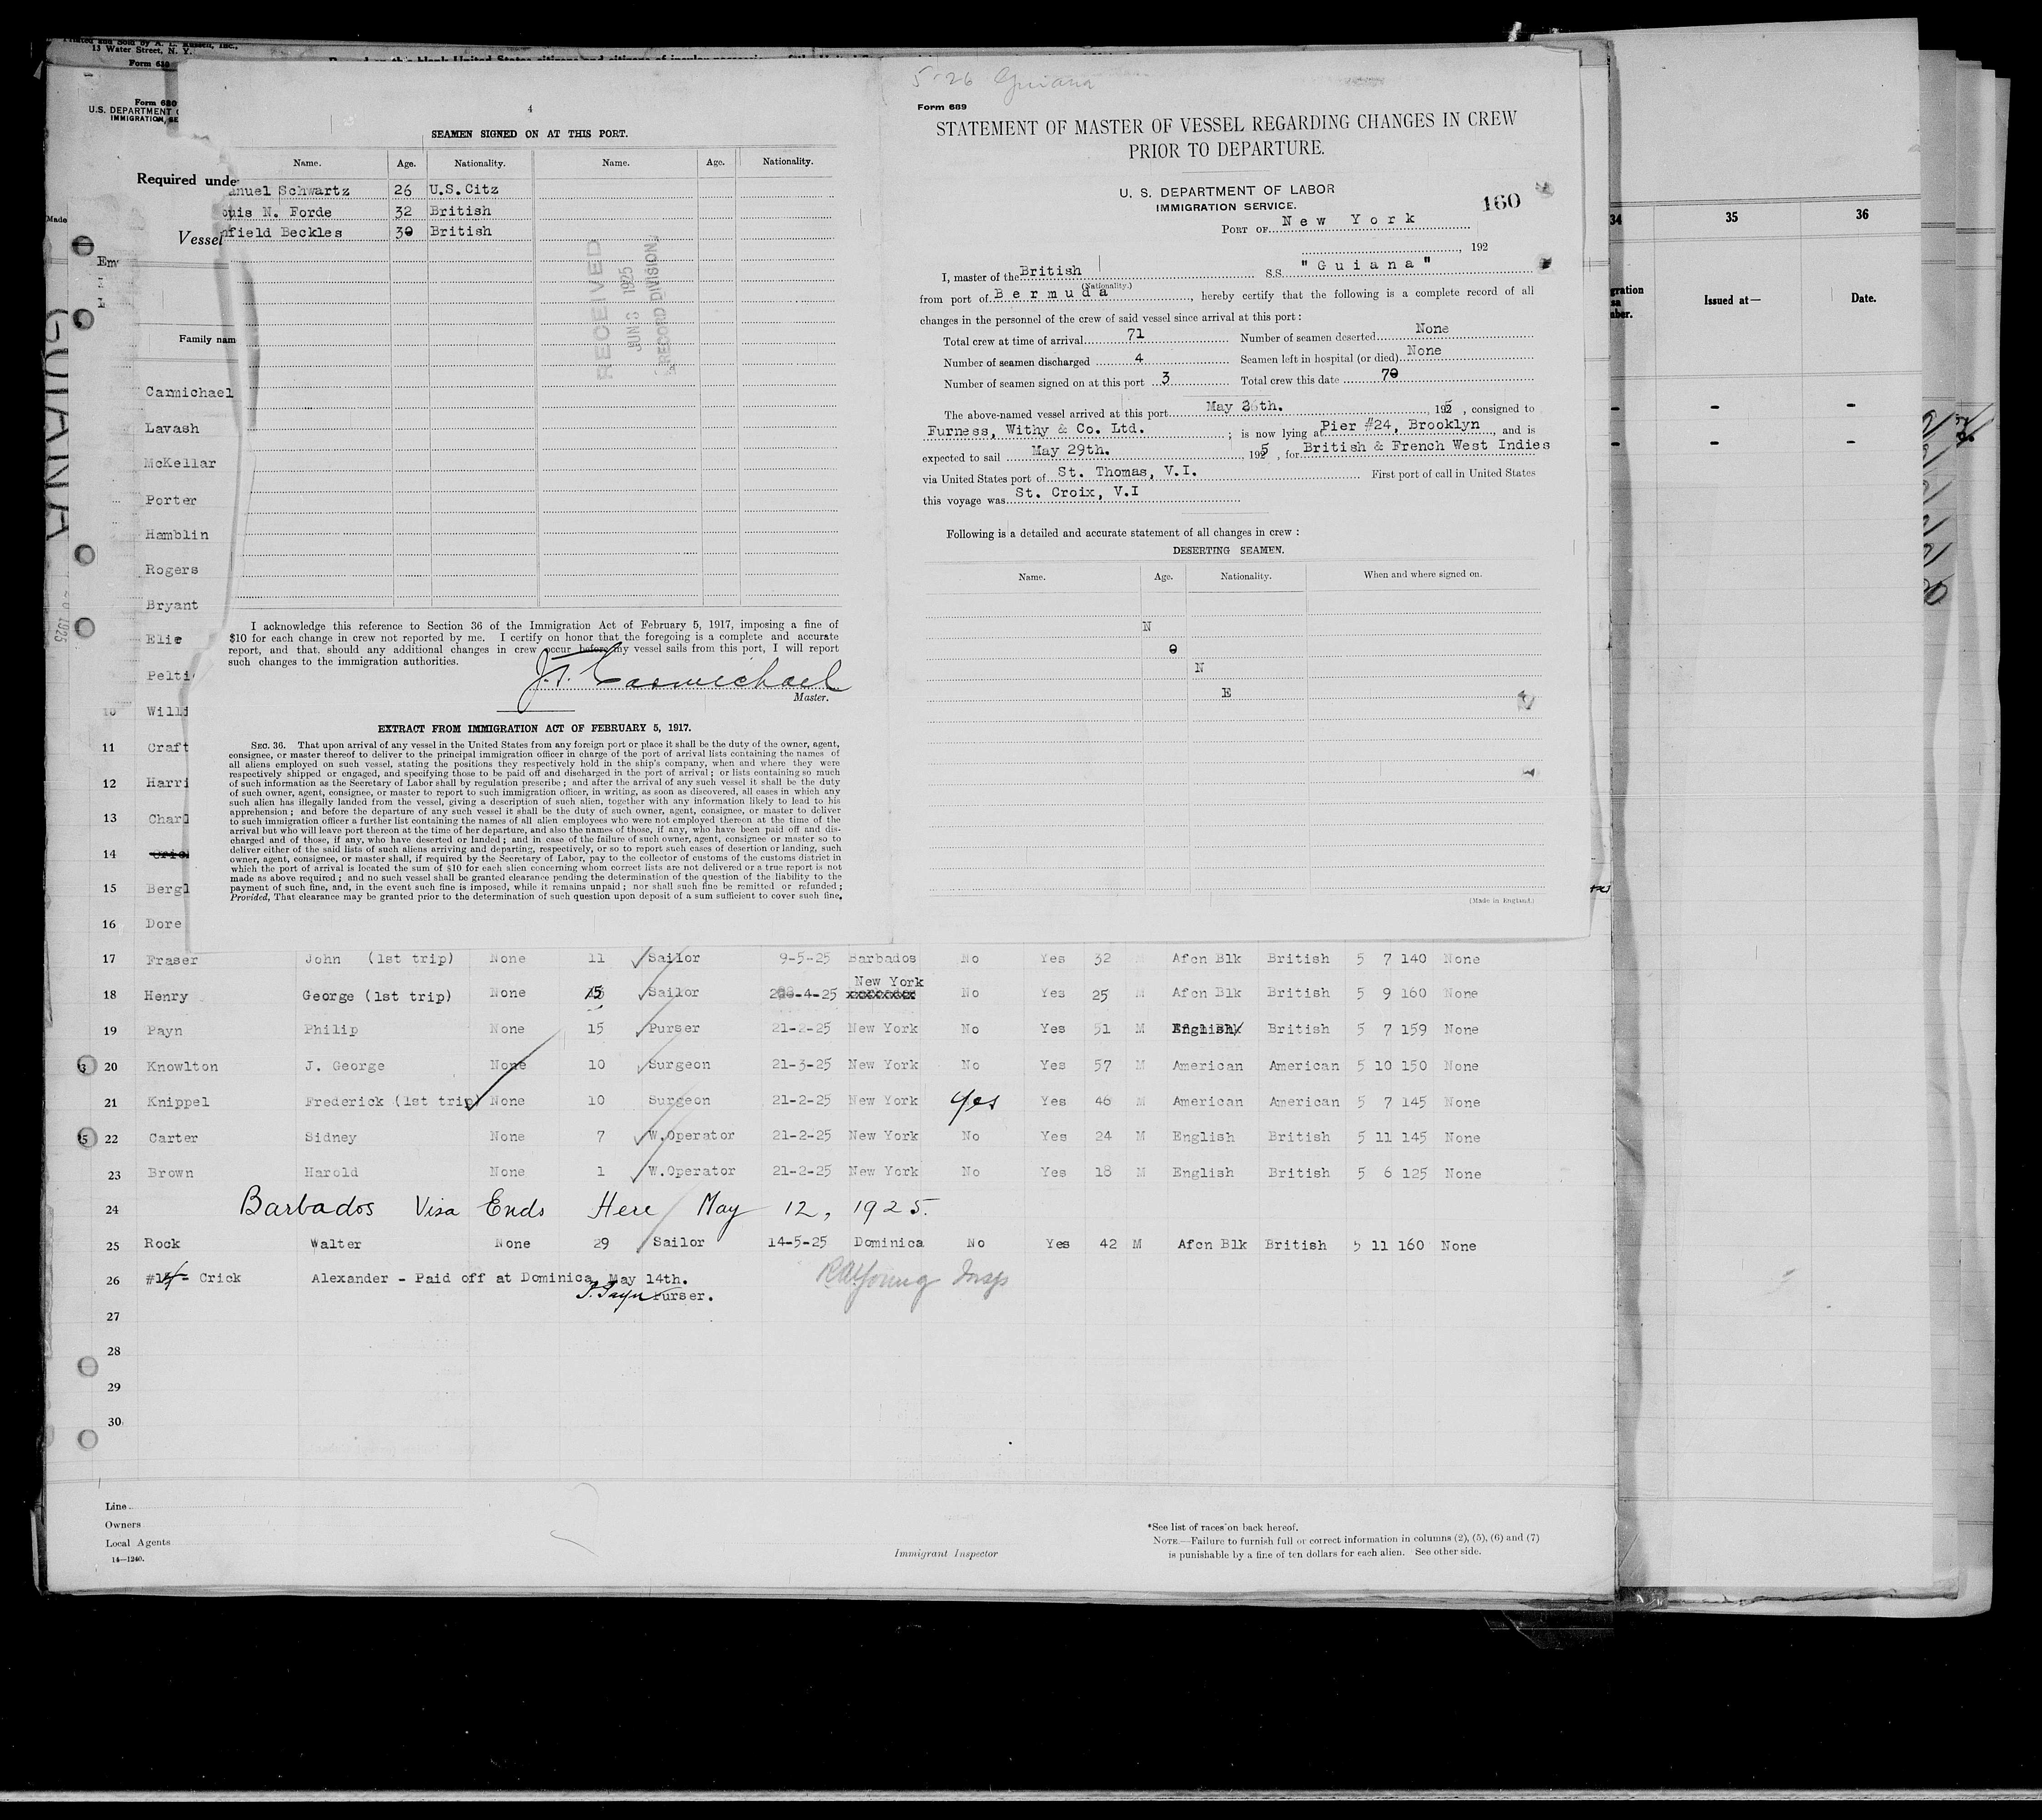 13 Water Street, N. Y.
Form 680
U.S. DEPARTMENT
IMMIGRATION, SE
Required unde
Vessel
Made
GUIANA
Family nam
Carmichael
Lavash
McKellar
Porter
Hamblin
Rogers
Bryant
Elie
Pelti
10 Willi
11 Craft
12 Harri
13 Charl
14 Crick
15 Bergl
16 Dore
4
SEAMEN SIGNED ON AT THIS PORT.
Name. Age. Nationality. Name. Age. Nationality.
anuel Schwartz 26 U.S.Citz
ouis N. Forde 32 British
nfield Beckles 30 British
RECEIVED
JUN 3 1925
RECORD DIVISION
I acknowledge this reference to Section 36 of the Immigration Act of February 5, 1917, imposing a fine of
$10 for each change in crew not reported by me. I certify on honor that the foregoing is a complete and accurate
report, and that, should any additional changes in crew occur before my vessel sails from this port, I will report
such changes to the immigration authorities.
J.T. Carmichael
Master.
EXTRACT FROM IMMIGRATION ACT OF FEBRUARY 5, 1917.
SEC. 36. That upon arrival of any vessel in the United States from any foreign port or place it shall be the duty of the owner, agent,
consignee, or master thereof to deliver to the principal immigration officer in charge of the port of arrival lists containing the names of
all aliens employed on such vessel, stating the positions they respectively hold in the ship's company, when and where they were
respectively shipped or engaged, and specifying those to be paid off and discharged in the port of arrival; or lists containing so much
of such information as the Secretary of Labor shall by regulation prescribe; and after the arrival of any such vessel it shall be the duty
of such owner, agent, consignee, or master to report to such immigration officer, in writing, as soon as discovered, all cases in which any
such alien has illegally landed from the vessel, giving a description of such alien, together with any information likely to lead to his
apprehension; and before the departure of any such vessel it shall be the duty of such owner, agent, consignee, or master to deliver
to such immigration officer a further list containing the names of all alien employees who were not employed thereon at the time of the
arrival but who will leave port thereon at the time of her departure, and also the names of those, if any, who have been paid off and dis-
charged and of those, if any, who have deserted or landed; and in case of the failure of such owner, agent, consignee or master so to
deliver either of the said lists of such aliens arriving and departing, respectively, or so to report such cases of desertion or landing, such
owner, agent, consignee, or master shall, if required by the Secretary of Labor, pay to the collector of customs of the customs district in
which the port of arrival is located the sum of $10 for each alien concerning whom correct lists are not delivered or a true report is not
made as above required; and no such vessel shall be granted clearance pending the determination of the question of the liability to the
payment of such fine, and, in the event such fine is imposed, while it remains unpaid; nor shall such fine be remitted or refunded;
Provided, That clearance may be granted prior to the determination of such question upon deposit of a sum sufficient to cover such fine.
5-26 Guiana
Form 689
STATEMENT OF MASTER OF VESSEL REGARDING CHANGES IN CREW
PRIOR TO DEPARTURE.
U. S. DEPARTMENT OF LABOR
IMMIGRATION SERVICE.
160
PORT OF New York
, 192
I, master of the British S.S. "Guiana"
(Nationality.)
from port of Bermuda, hereby certify that the following is a complete record of all
changes in the personnel of the crew of said vessel since arrival at this port:
Total crew at time of arrival 71 Number of seamen deserted None
Number of seamen discharged 4 Seamen left in hospital (or died) None
Number of seamen signed on at this port 3 Total crew this date 70
The above-named vessel arrived at this port May 26th., 1925, consigned to
Furness, Withy & Co. Ltd. ; is now lying at Pier #24, Brooklyn, and is
expected to sail May 29th., 1925, for British & French West Indies
via United States port of St. Thomas, V.I. First port of call in United States
this voyage was St. Croix, V.I
Following is a detailed and accurate statement of all changes in crew:
DESERTING SEAMEN.
Name. Age. Nationality. When and where signed on.
N
O
N
E
(Made in England.)
34 35 36
gration
sa
aber.
Issued at— Date.
- - -
- - -
17 Fraser John (1st trip) None 11 Sailor 9-5-25 Barbados No Yes 32 M Afcn Blk British 5 7 140 None
New York
18 Henry George (1st trip) None 15 Sailor -4-25 xxxxxxxx No Yes 25 M Afcn Blk British 5 9 160 None
19 Payn Philip None 15 Purser 21-2-25 New York No Yes 51 M English British 5 7 159 None
3 20 Knowlton J. George None 10 Surgeon 21-3-25 New York No Yes 57 M American American 5 10 150 None
21 Knippel Frederick (1st trip) None 10 Surgeon 21-2-25 New York Yes Yes 46 M American American 5 7 145 None
22 Carter Sidney None 7 W.Operator 21-2-25 New York No Yes 24 M English British 5 11 145 None
23 Brown Harold None 1 W.Operator 21-2-25 New York No Yes 18 M English British 5 6 125 None
24 Barbados Visa Ends Here May 12, 1925.
25 Rock Walter None 29 Sailor 14-5-25 Dominica No Yes 42 M Afcn Blk British 5 11 160 None
26 #14- Crick Alexander - Paid off at Dominica, May 14th. RAYoung Insp
P. Payn Purser.
27
28
29
30
Line
Owners
Local Agents
14—1240.
Immigrant Inspector
*See list of races on back hereof.
NOTE.—Failure to furnish full or correct information in columns (2), (5), (6) and (7)
is punishable by a fine of ten dollars for each alien. See other side.